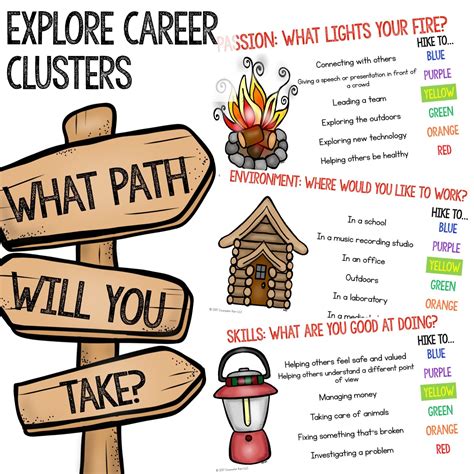 EXPLORE CAREER
CLUSTERS
WHAT PATH
WILL YOU
TAKE?
PASSION: WHAT LIGHTS YOUR FIRE?
HIKE TO...
Connecting with others
BLUE
Giving a speech or presentation in front of
a crowd
PURPLE
Leading a team
YELLOW
Exploring the outdoors
GREEN
Exploring new technology
ORANGE
Helping others be healthy
RED
ENVIRONMENT: WHERE WOULD YOU LIKE TO WORK?
HIKE TO...
In a school
BLUE
In a music recording studio
PURPLE
In an office
YELLOW
Outdoors
GREEN
In a laboratory
ORANGE
In a
SKILLS: WHAT ARE YOU GOOD AT DOING?
HIKE TO...
Helping others feel safe and valued
BLUE
Helping others understand a different point
of view
PURPLE
Managing money
YELLOW
Taking care of animals
GREEN
Fixing something that's broken
ORANGE
Investigating a problem
RED